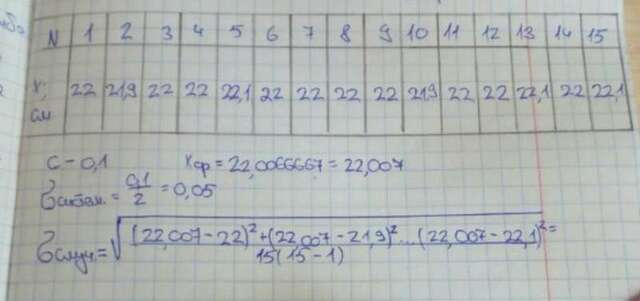 N 1 2 3 4 5 6 7 8 9 10 11 12 13 14 15
x, см 22 21,9 22 22 22,1 22 22 22 22 21,9 22 22 22,1 22 22,1
C - 0,1 Xср = 22,0066667 = 22,007
= 0,1/2 = 0,05
σслуч. = √((22,007-22)²+(22,007-21,9)²...(22,007-22,1)²/15(15-1)) =